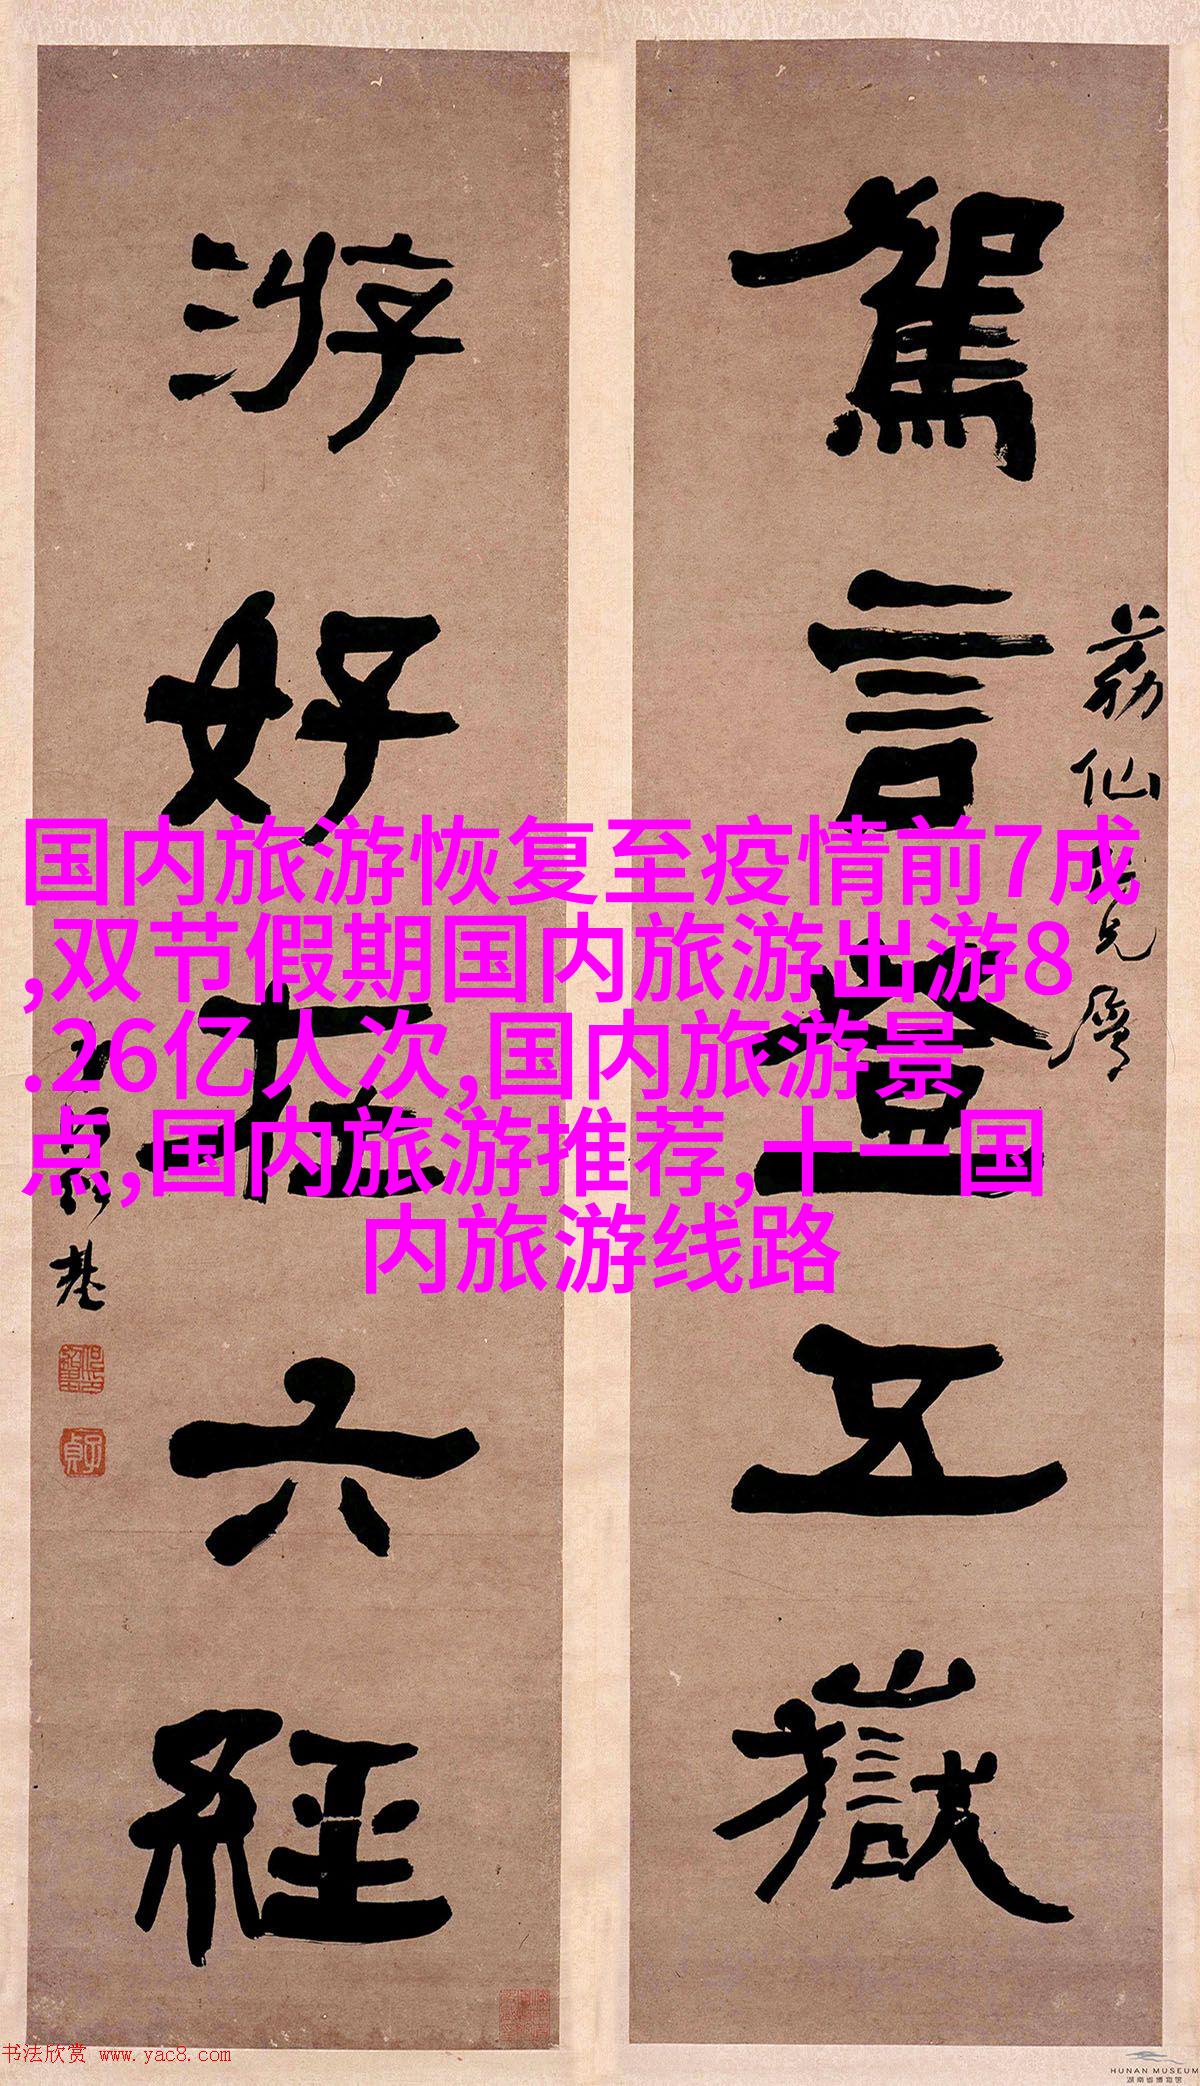 駕言登五嶽
荔仙兄屬
游好在六經
基
子貞
国内旅游恢复至疫情前7成
,双节假期国内旅游出游8
.26亿人次,国内旅游景
点,国内旅游推荐,十一国
内旅游线路
书法欣赏 www.yac8.com
HUNAN MUSEUM
湖南省博物馆